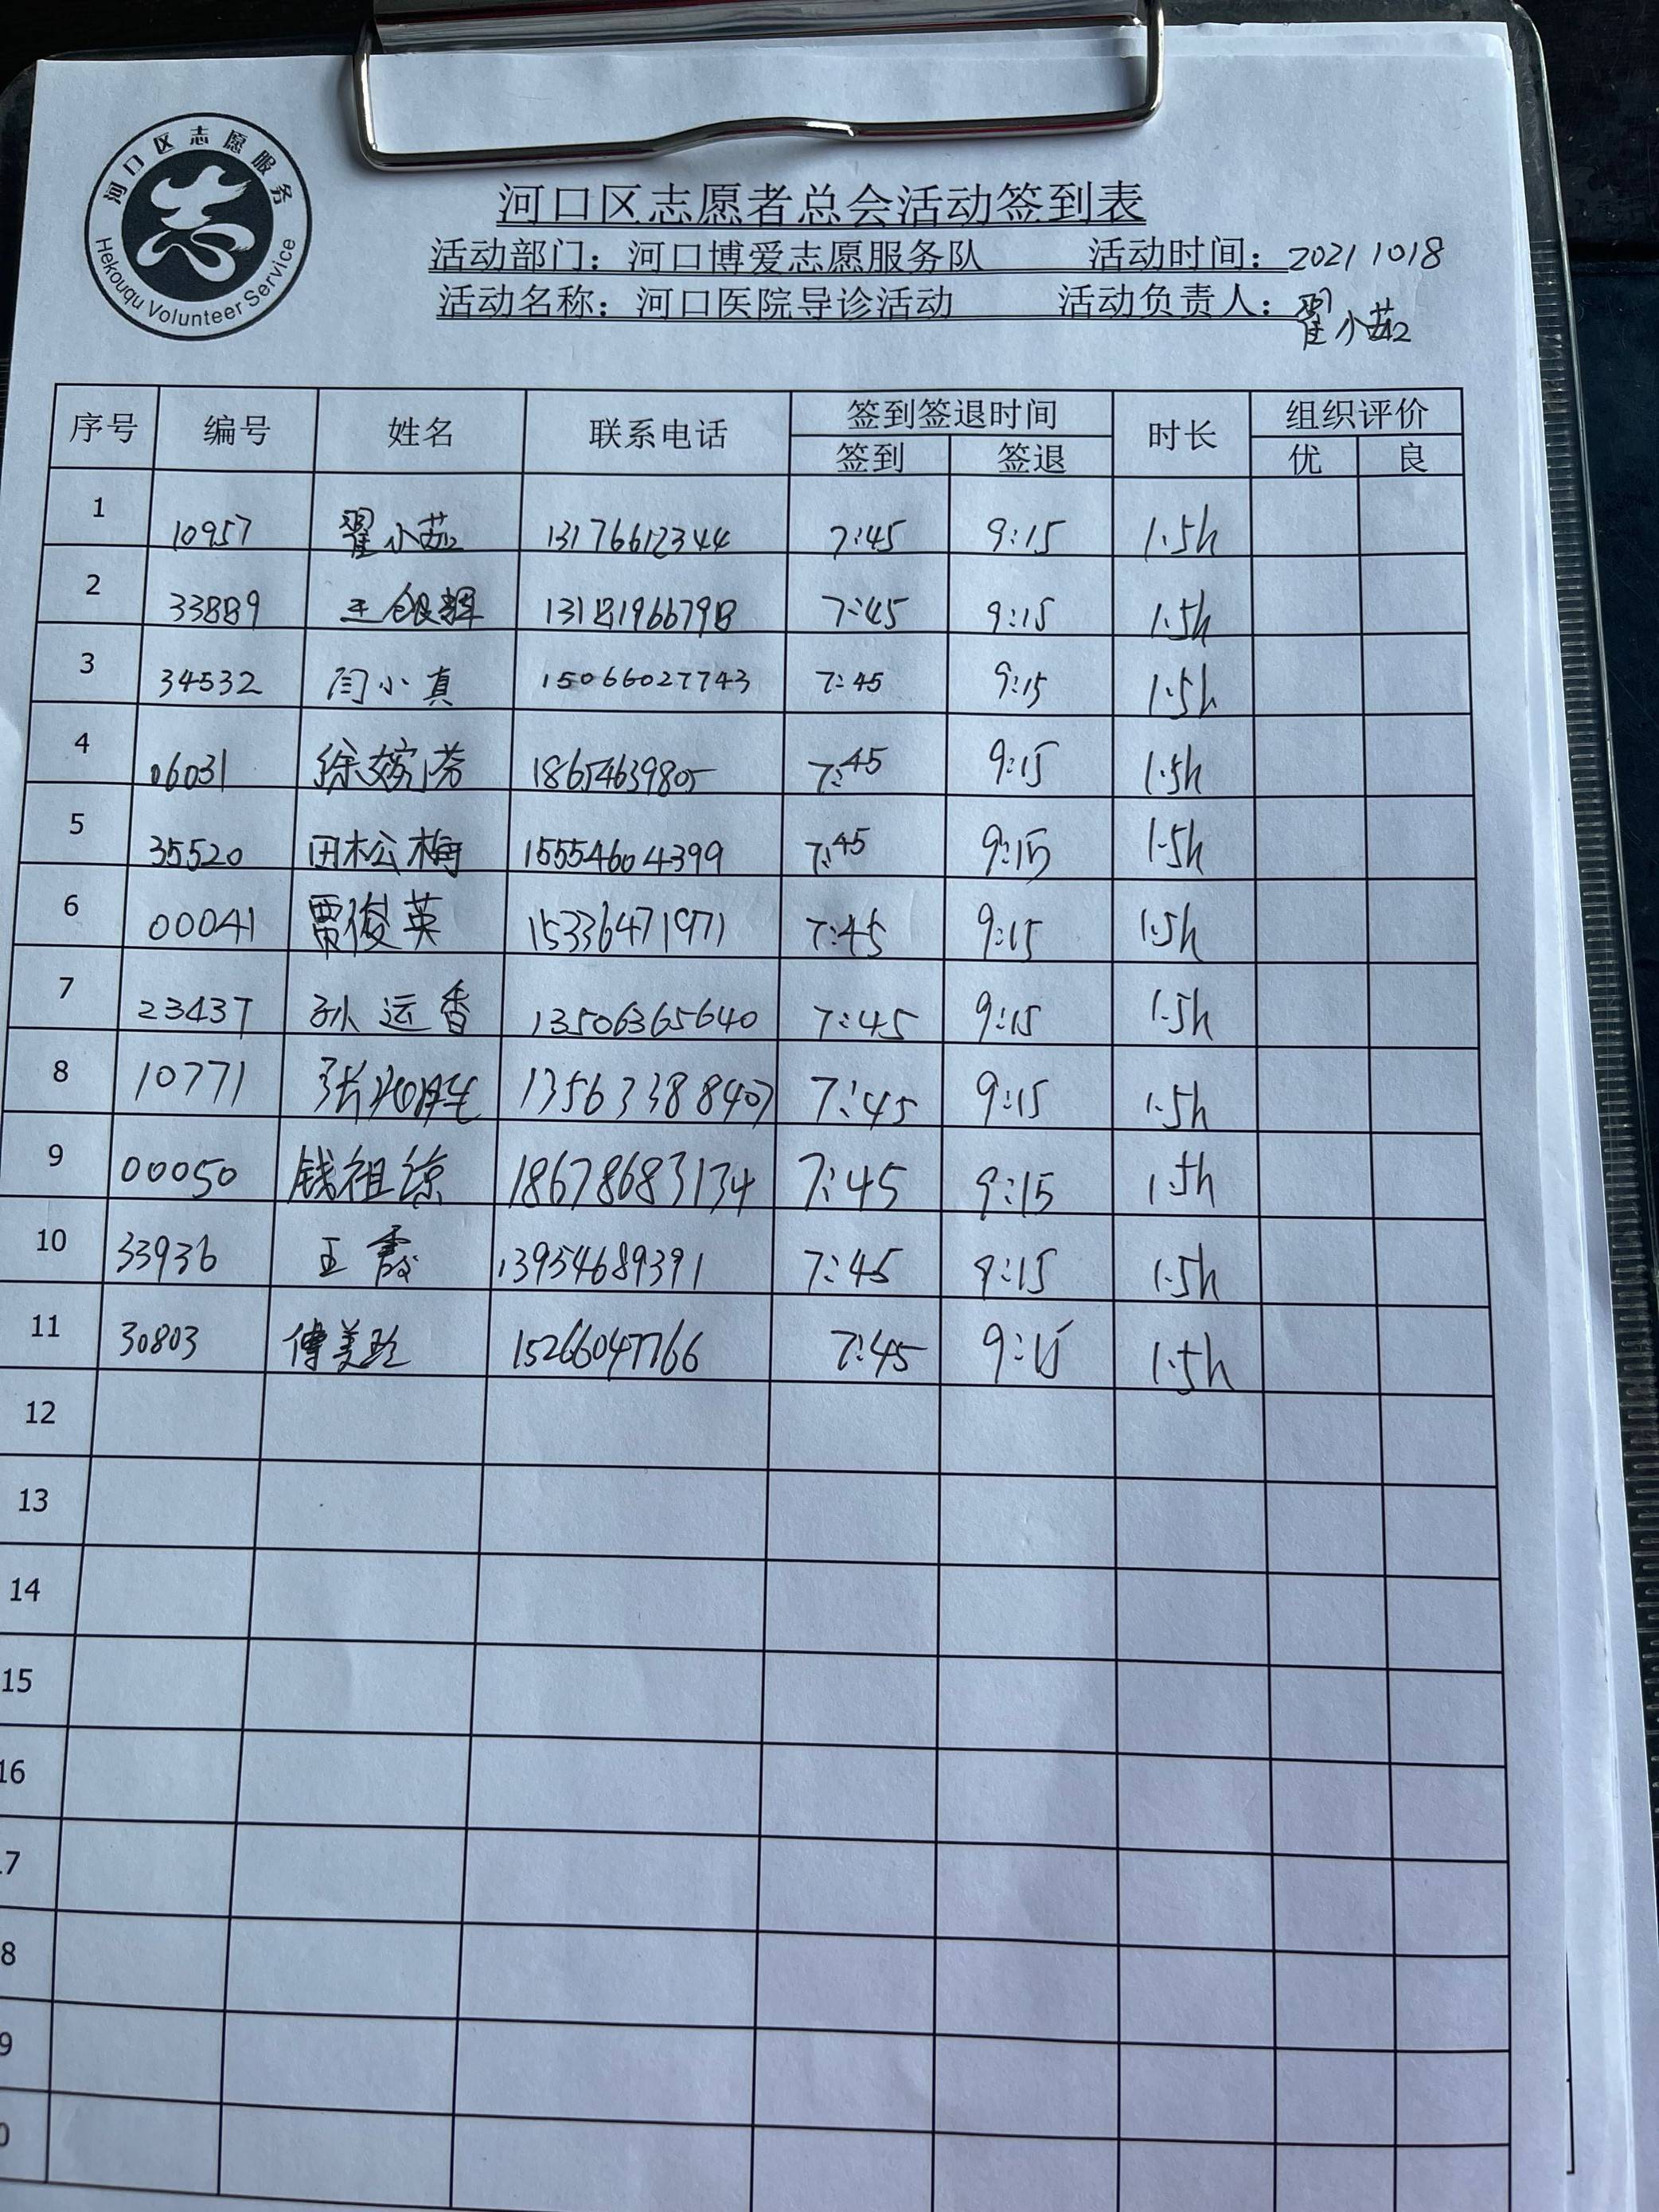 河口区志愿服务
Hekouqu Volunteer Service
河口区志愿者总会活动签到表
活动部门：河口博爱志愿服务队 活动时间：20211018
活动名称：河口医院导诊活动 活动负责人：翟小茹
序号 编号 姓名 联系电话 签到签退时间 时长 组织评价
签到 签退 优 良
1 10957 翟小茹 13176612344 7:45 9:15 1.5h
2 33889 王银辉 13181966798 7:45 9:15 1.5h
3 34532 闫小真 15066027743 7:45 9:15 1.5h
4 06031 徐嫔芳 18654639805 7:45 9:15 1.5h
5 35520 田松梅 15554604399 7:45 9:15 1.5h
6 00041 贾俊英 15336471971 7:45 9:15 1.5h
7 23437 孙运香 13506365640 7:45 9:15 1.5h
8 10771 张 13563388407 7:45 9:15 1.5h
9 00050 钱祖 18678683134 7:45 9:15 1.5h
10 33936 王霞 13954689391 7:45 9:15 1.5h
11 30803 傅美玲 15266047766 7:45 9:15 1.5h
12
13
14
15
16
17
8
9
0